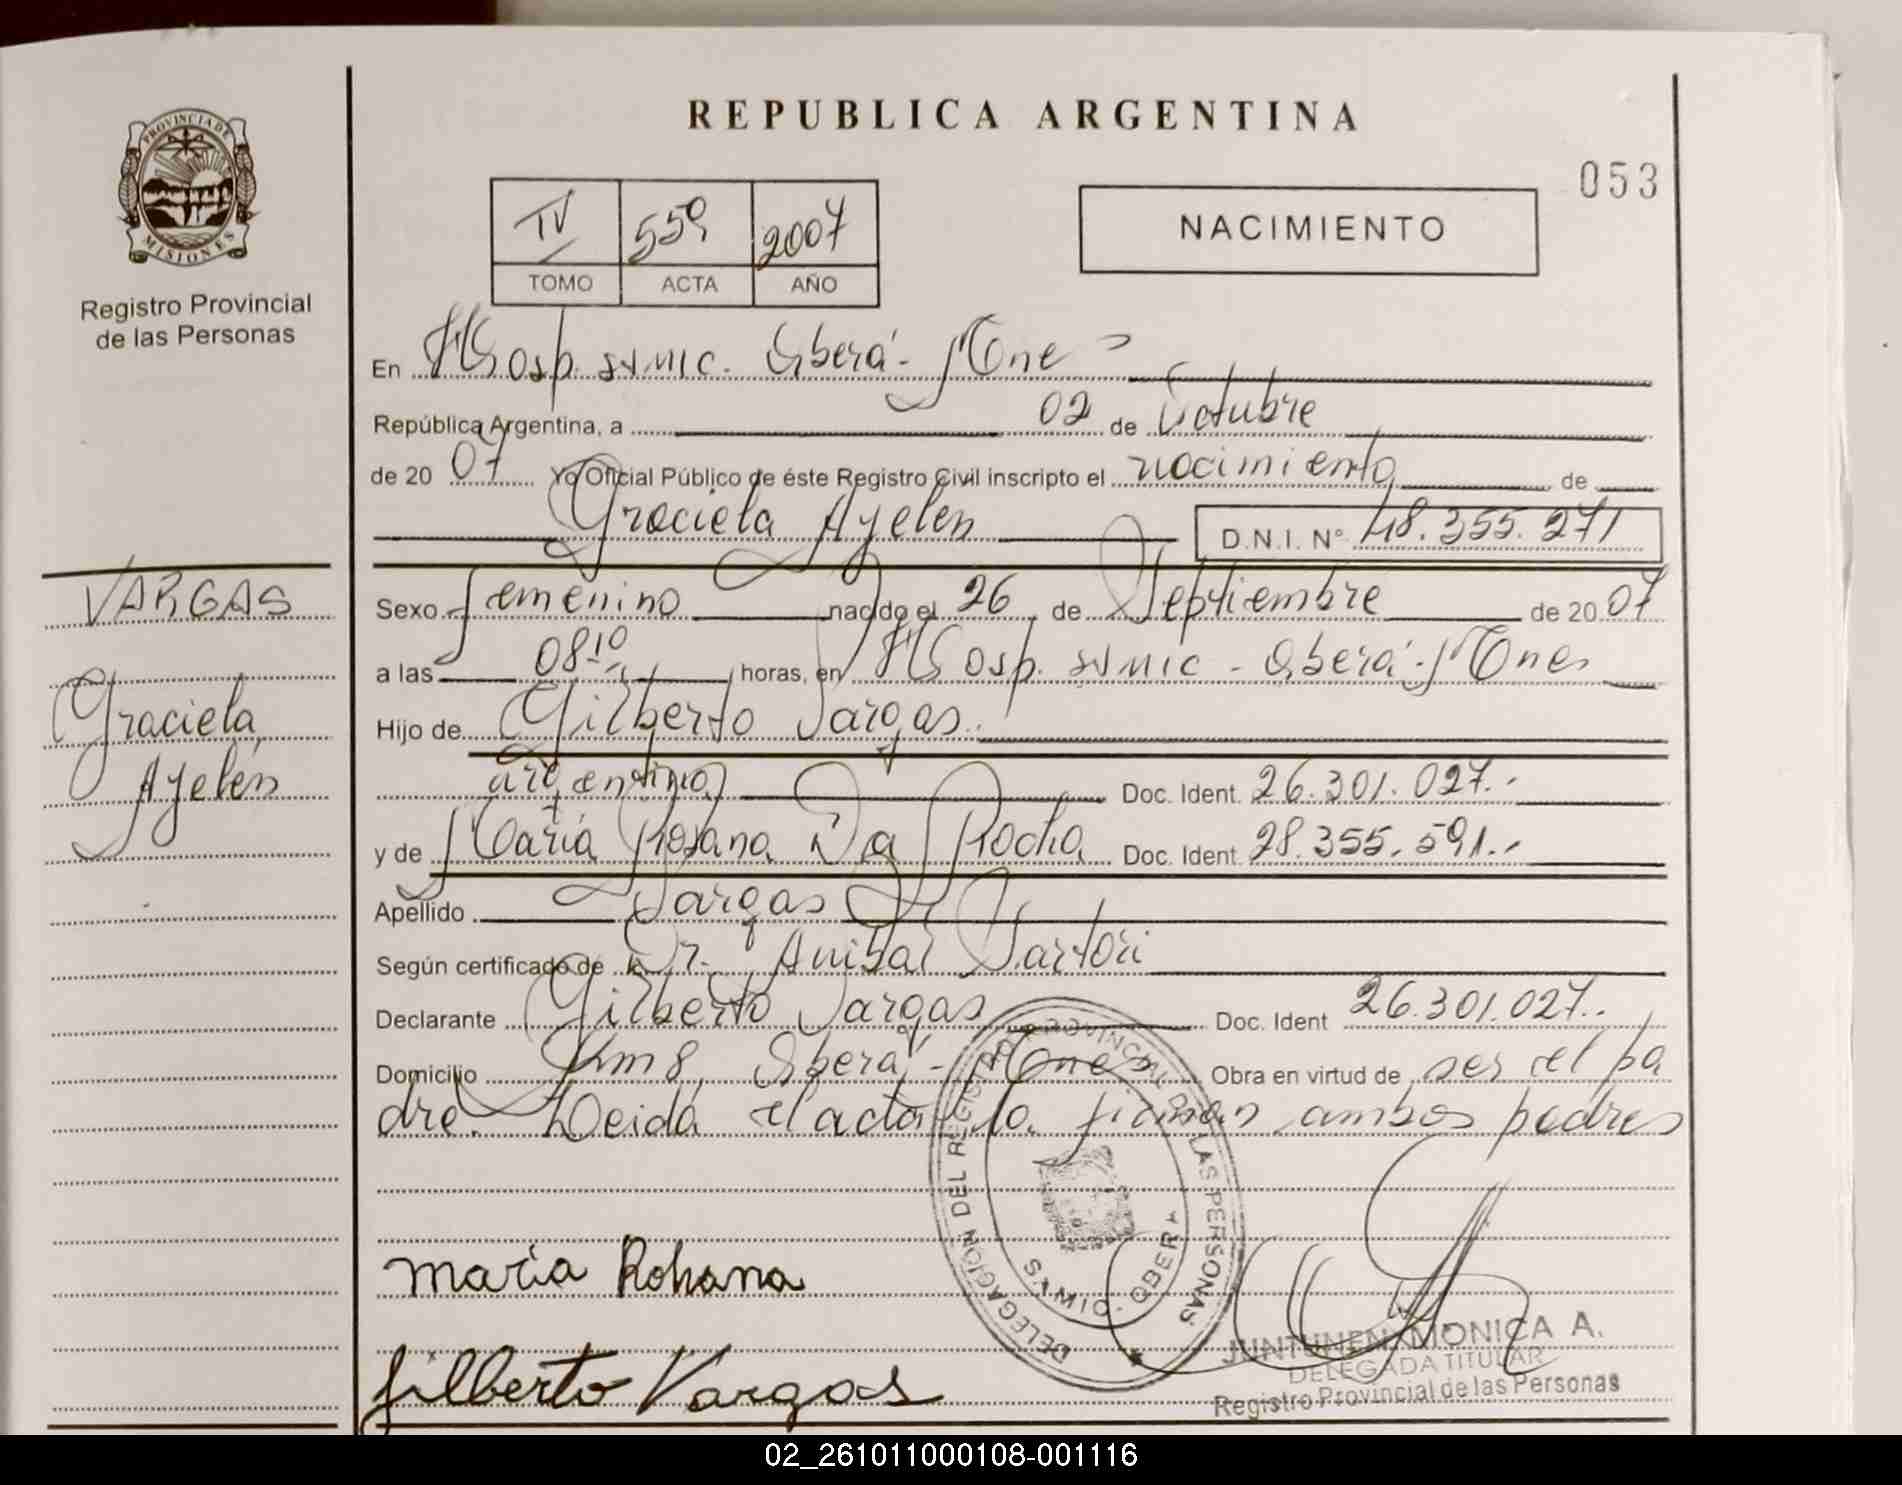 REPUBLICA ARGENTINA
053
PROVINCIA DE
MISIONES
Registro Provincial
de las Personas
IV 559 2007
TOMO ACTA AÑO
NACIMIENTO
En Hosp. SAMIC. Oberá - Mnes
República Argentina, a 02 de Octubre
de 20 07 Yo Oficial Público de éste Registro Civil inscripto el nacimiento de
Graciela Ayelén D.N.I. Nº 48.355.271
VARGAS
Graciela
Ayelén
Sexo femenino nacido el 26 de Septiembre de 20 07
a las 08:10 horas, en Hosp. SAMIC - Oberá - Mnes
Hijo de Gilberto Vargas.
argentino Doc. Ident. 26.301.027..
y de María Rosana Da Rocha Doc. Ident. 28.355.591..
Apellido Vargas
Según certificado de Dr. Anibal Sartori
Declarante Gilberto Vargas Doc. Ident 26.301.027..
Domicilio Km 8, Oberá - Mnes Obra en virtud de ser el pa
dre. Leida el acta la firman ambos padres
DELEGACIÓN DEL REGISTRO PROVINCIAL DE LAS PERSONAS
OBERA
maria Rohana
Gilberto Vargas
JUNTUNEN MONICA A.
DELEGADA TITULAR
Registro Provincial de las Personas
02_261011000108-001116